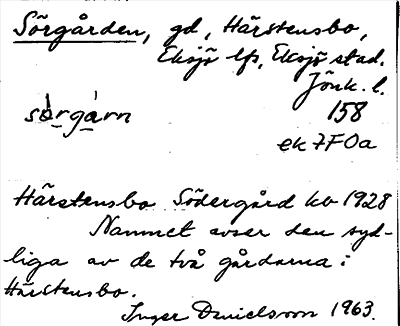 Sörgården, gd, Härstensbo,
Eksjö lfs, Eksjö stad.
Jönk. l.
sö̀rgá̱rn 158
ek 7F0a
Härstensbo Södergård kb 1928
Namnet avser den syd-
liga av de två gårdarna i
Härstensbo.
Inger Danielsson 1963.